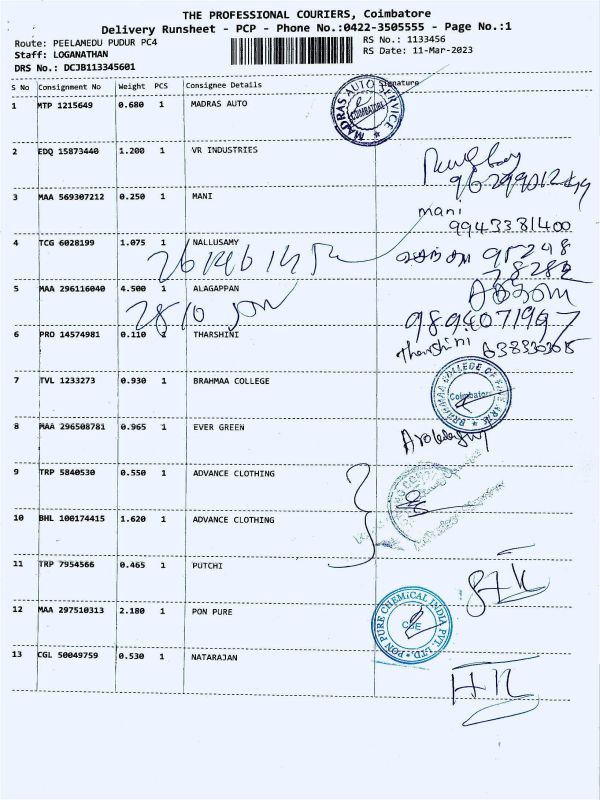 THE PROFESSIONAL COURIERS, Coimbatore
Delivery Runsheet - PCP - Phone No.:0422-3505555 - Page No.:1
Route: PEELANEDU PUDUR PC4
RS No.: 1133456
Staff: LOGANATHAN
RS Date: 11-Mar-2023
DRS No.: DCJB113345601
S No Consignment No Weight PCS Consignee Details Signature
1 MTP 1215649 0.680 1 MADRAS AUTO
MADRAS AUTO SERVICE COIMBATORE
2 EDQ 15873440 1.200 1 VR INDUSTRIES
3 MAA 569307212 0.250 1 MANI
mani
9943381400
4 TCG 6028199 1.075 1 NALLUSAMY
95248
78282
5 MAA 296116040 4.500 1 ALAGAPPAN
9894071967
6 PRO 14574981 0.110 1 THARSHINI
Tharshini
7 TVL 1233273 0.930 1 BRAHMAA COLLEGE
BRAHMAA COLLEGE OF Coimbatore
8 MAA 296508781 0.965 1 EVER GREEN
9 TRP 5840530 0.550 1 ADVANCE CLOTHING
10 BHL 100174415 1.620 1 ADVANCE CLOTHING
11 TRP 7954566 0.465 1 PUTCHI
12 MAA 297510313 2.180 1 PON PURE
PON PURE CHEMICAL INDIA PVT. LTD. CBE
13 CGL 50049759 0.530 1 NATARAJAN